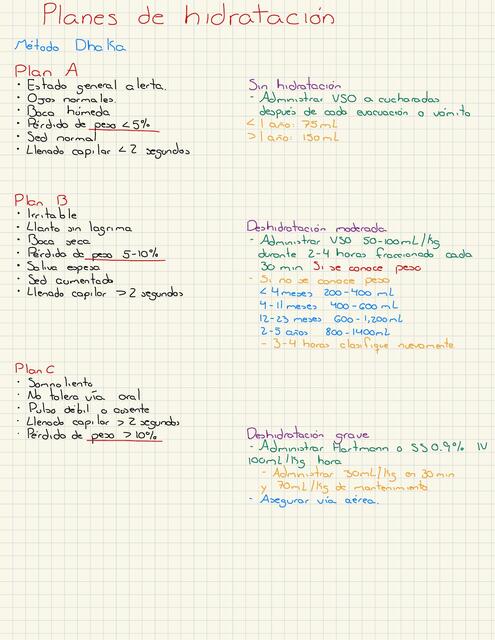 Planes de hidratación
Método Dhaka
Plan A
· Estado general alerta.
· Ojos normales.
· Boca húmeda
· Pérdida de peso <5%
· Sed normal
· Llenado capilar <2 segundos
Sin hidratación
- Administrar VSO a cucharadas
después de cada evacuación o vómito
< 1 año: 75mL
> 1 año: 150mL
Plan B
· Irritable
· Llanto sin lagrima
· Boca seca
· Pérdida de peso 5-10%
· Saliva espesa
· Sed aumentada
· Llenado capilar >2 segundos
Deshidratación moderada
- Administrar VSO 50-100mL/Kg
durante 2-4 horas fraccionado cada
30 min Si se conoce peso
- Si no se conoce peso
<4 meses 200-400 mL
4-11 meses 400-600 mL
12-23 meses 600-1,200mL
2-5 años 800-1400mL
- 3-4 horas clasifique nuevamente
Plan C
· Somnoliento
· No tolera vía oral
· Pulso débil o ausente
· Llenado capilar >2 segundos
· Pérdida de peso >10%
Deshidratación grave
- Administrar Hartmann o SS0.9% IV
100mL/Kg hora
- Administrar 30mL/Kg en 30min
y 70mL/Kg de mantenimiento
- Asegurar vía aérea.